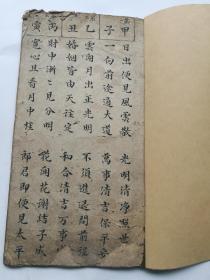 甲 日出便見風雲散 光明清淨照世
子 一向前途通大道 萬事清吉保平安
乙 雲開月出正光明 不須進退問前程
丑 婚姻皆由天註定 和合清吉萬事
丙 財中漸漸見分明 花開花謝結子成
寅 寬心且看月中桂 郎君即便見太平